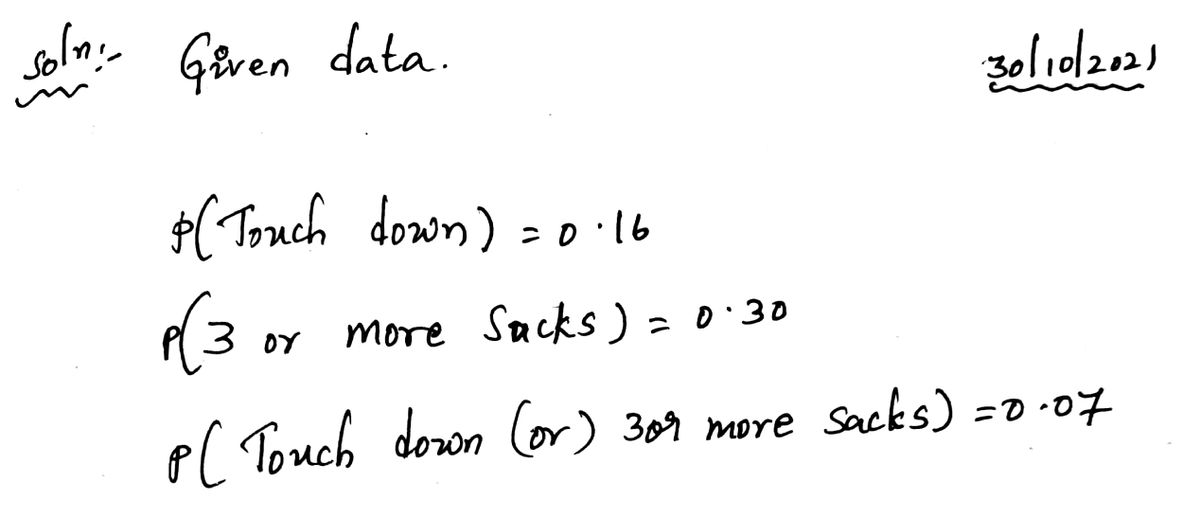 Soln:- Given data. 30/10/2021
P(Touch down) = 0.16
P(3 or more Sacks) = 0.30
P(Touch down (or) 3 or more sacks) = 0.07